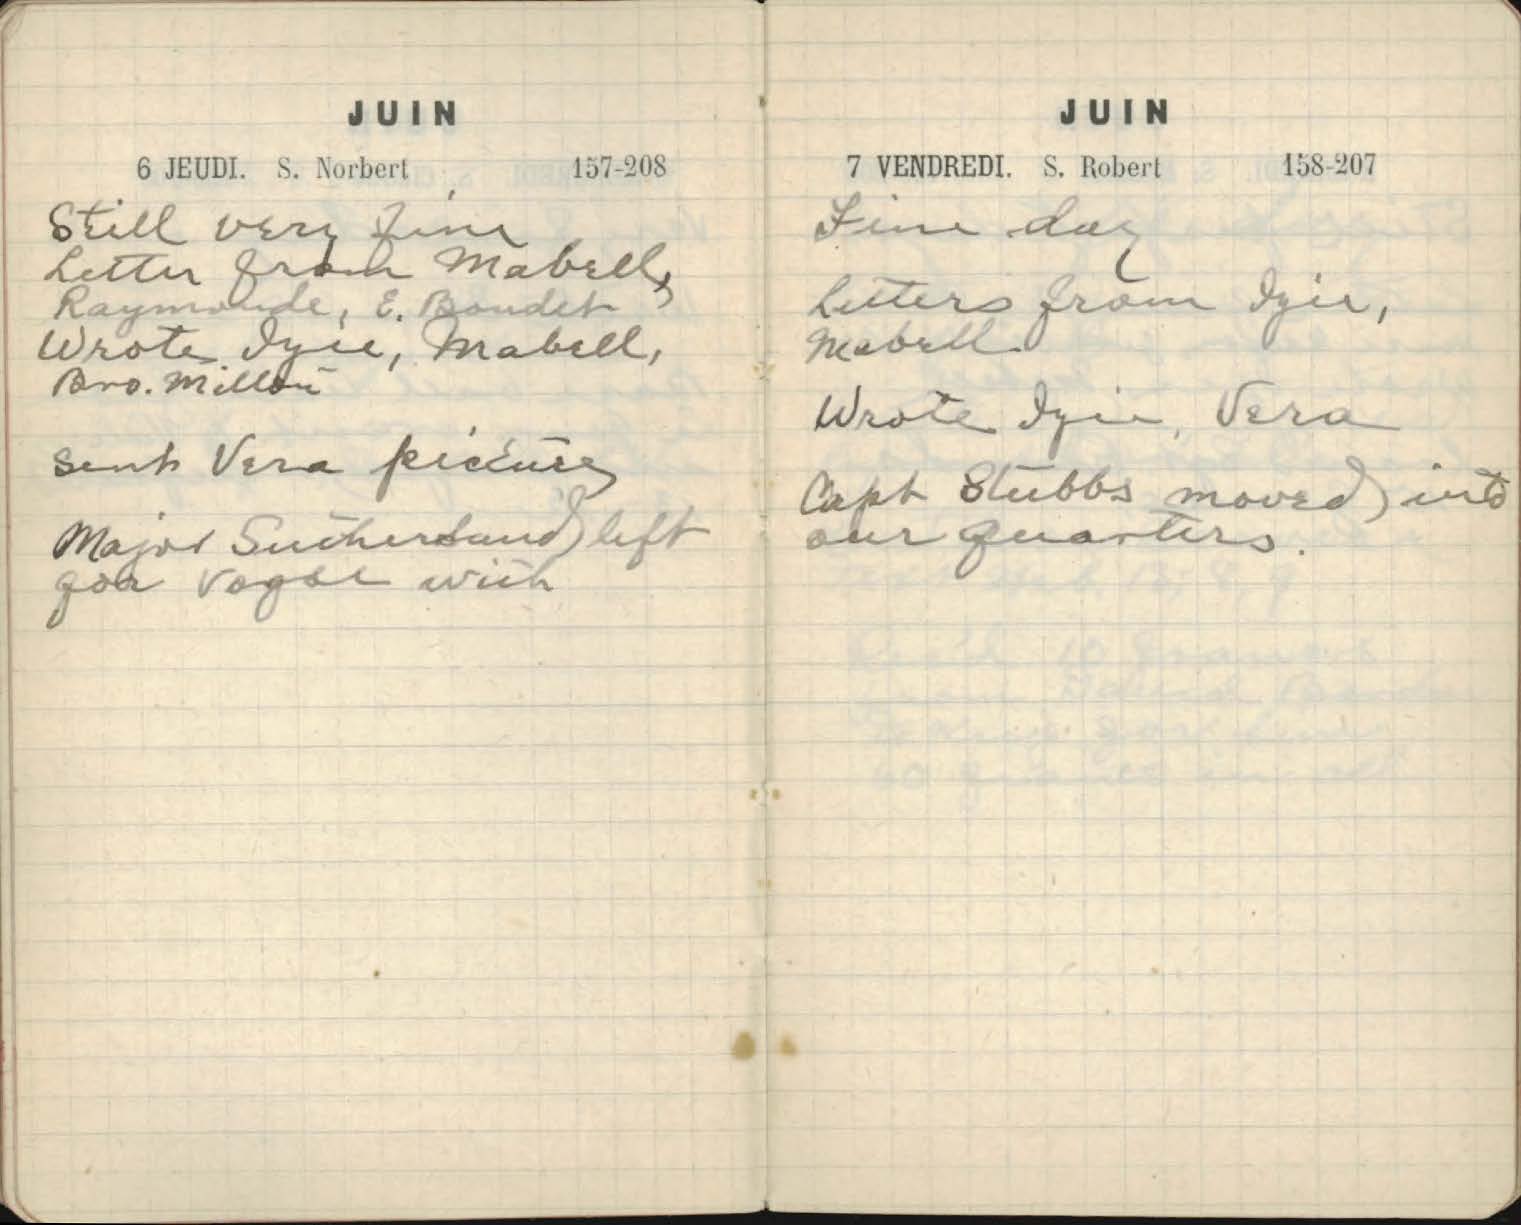 JUIN
6 JEUDI. S. Norbert 157-208
Still very fine
Letter from Mabell,
Raymonde, E. Boudet
Wrote Izie, Mabell,
Bro. Milton
sent Vera pictures
Major Sutherland left
for with
JUIN
7 VENDREDI. S. Robert 158-207
Fine day
Letters from Izie,
Mabell.
Wrote Izie, Vera
Capt Stubbs moved into
our quarters.